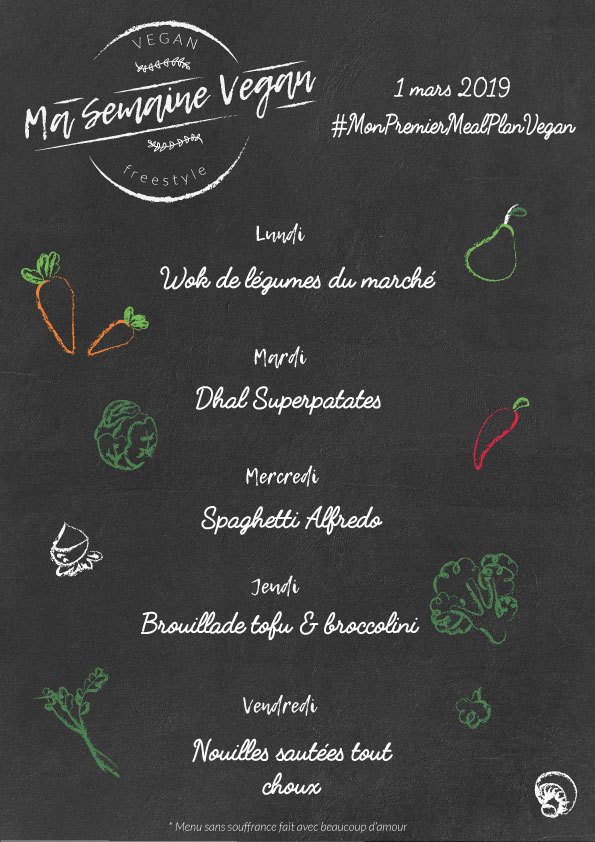 VEGAN
Ma Semaine Vegan
freestyle
1 mars 2019
#MonPremierMealPlanVegan
Lundi
Wok de légumes du marché
Mardi
Dhal Superpatates
Mercredi
Spaghetti Alfredo
Jendi
Brouillade tofu & broccolini
Vendredi
Nouilles sautées tout
choux
* Menu sans souffrance fait avec beaucoup d'amour